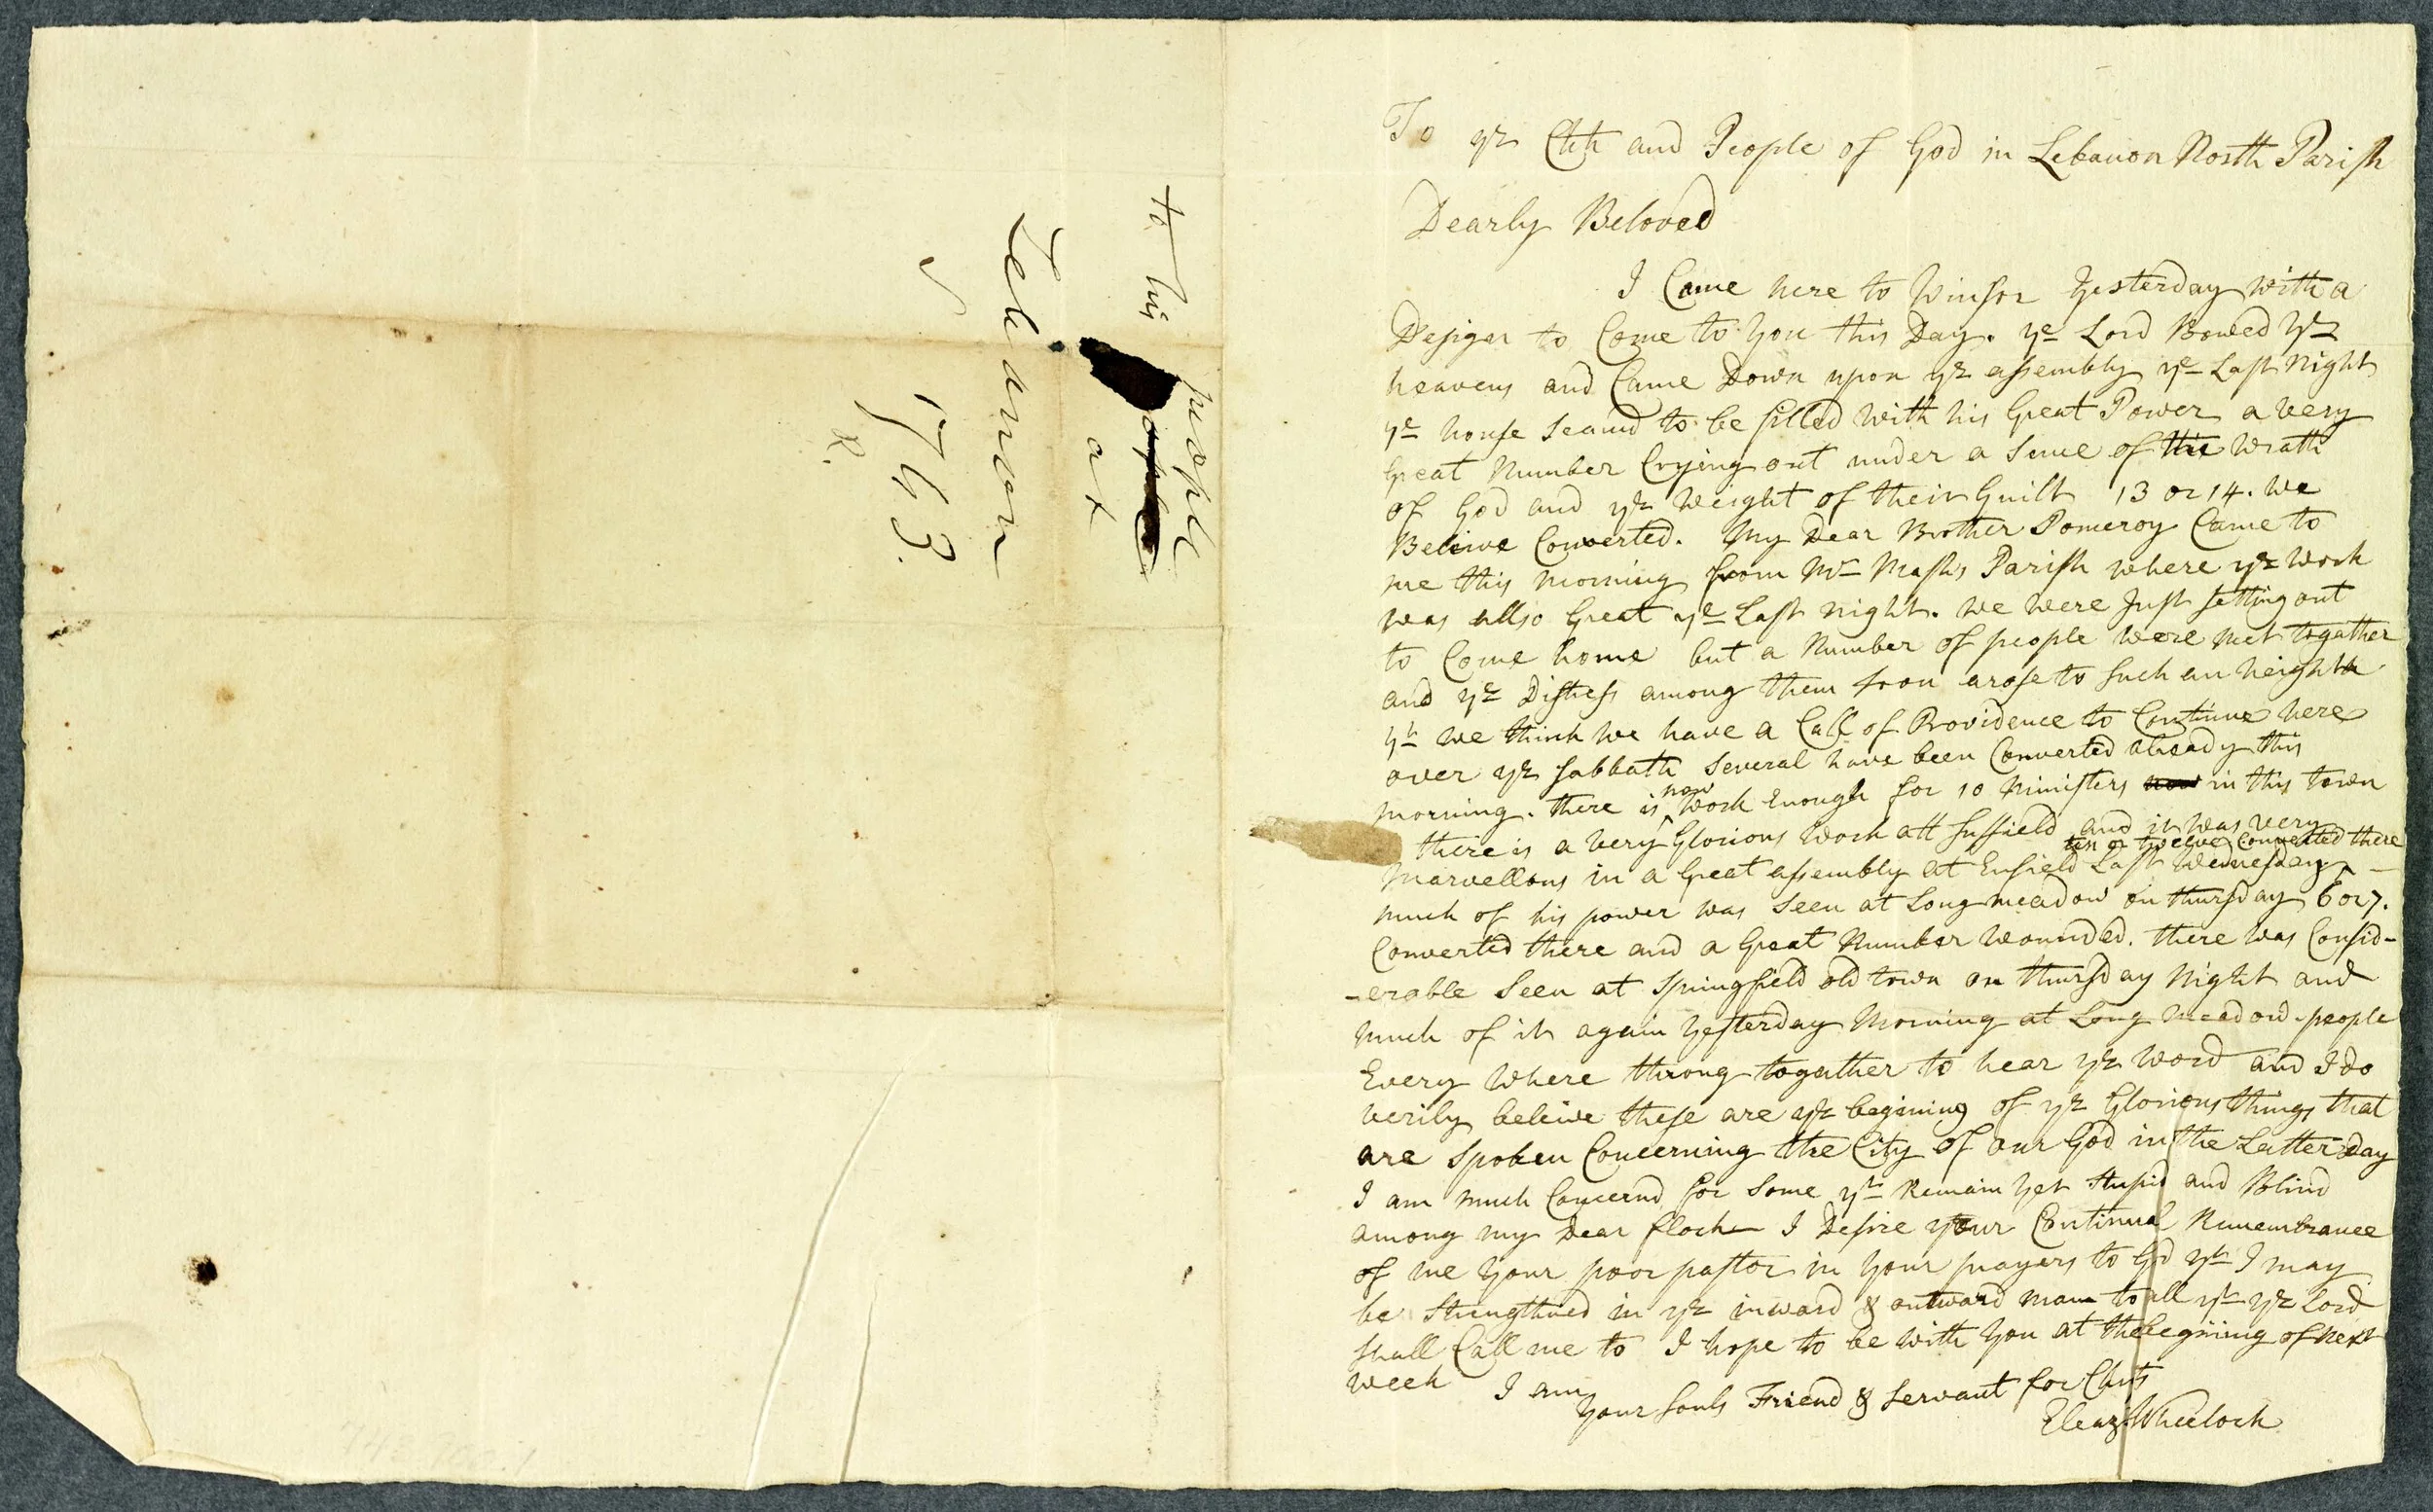 to his people
at
Lebanon
1763.
To ye Chh and People of God in Lebanon North Parish
Dearly Beloved
I Came here to Winsor Yesterday with a
Design to Come to You this Day. ye Lord Bowed ye
heavens and Came Down upon ye assembly ye Last Night
ye house seamd to be filled with his Great Power a very
Great Number Crying out under a sence of the Wrath
of God and ye Weight of their Guilt 13 or 14. we
Beleive Converted. My Dear Brother Pomeroy Came to
me this morning from Mr Mashs Parish where ye work
was allso Great ye Last night. we were Just setting out
to Come home but a Number of people were met togather
and ye Distress among them soon arose to such an heighth
yt we think we have a Call of Providence to Continue here
over ye sabbath Several have been Converted already this
morning. there is now work Enough for 10 Ministers now in this town
there is a very Glorious work att Suffield and it was very
marvellous in a Great assembly at Enfield Last Wednesday ten or twelve Converted there
much of his power was seen at Longmeadow on thursday 6 or 7.
Converted there and a Great Number Wounded. there was Consid-
-erable seen at Springfield old town on thursday Night and
much of it again Yesterday Morning at Long Meadow. people
Every where throng togather to hear ye word and I do
verily beleive these are ye begining of ye Glorious things that
are spoken Concerning the City of our God in the Latter Day
I am much Concernd for some yt Remain Yet Stupid and Blind
among my Dear flock I Desire your Continual Remembrance
of me your poor pastor in your prayers to God yt I may
be Strengthned in ye inward & outward man to all yt ye Lord
shall Call me to I hope to be with You at the begining of next
week I am
your souls Friend & Servant for Christ
Eleazr Wheelock